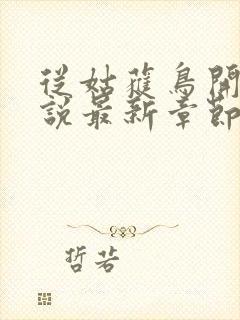 從姑蘿鳥開
說最新章節
哲若